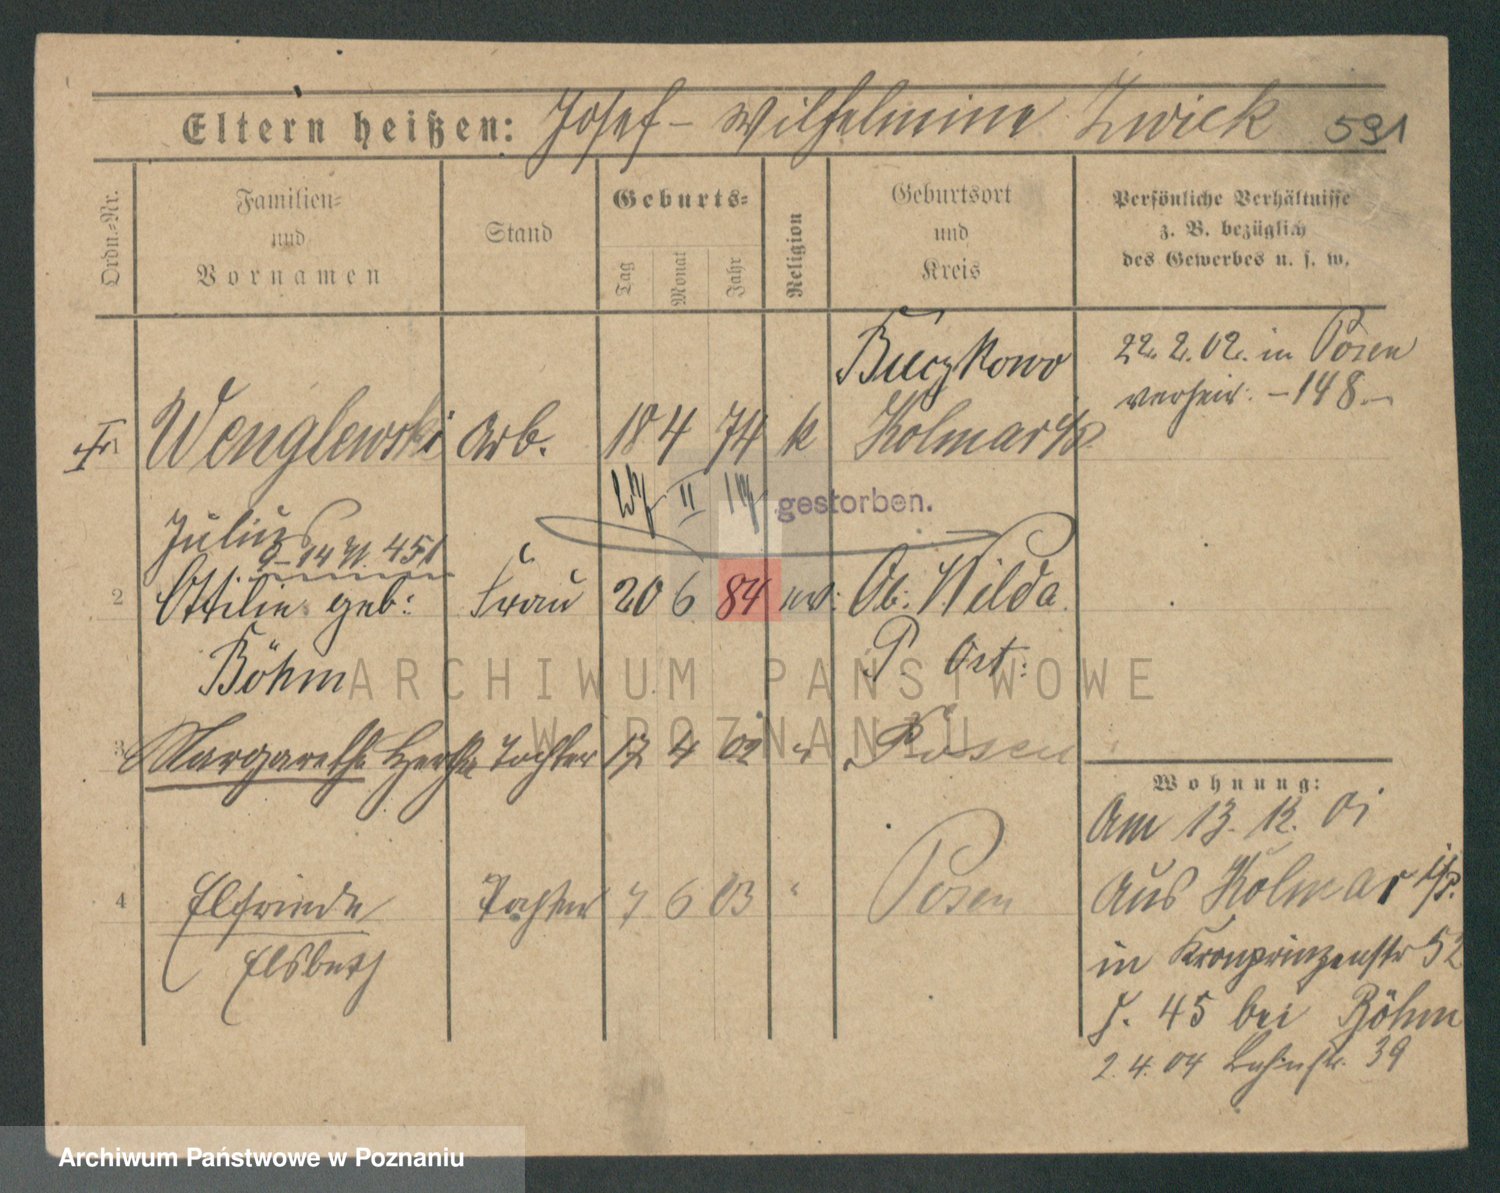 Eltern heißen: Josef – Wilhelmine Zwick 591
Ordn.-Nr.
Familien-
und
Vornamen
Stand
Geburts-
Tag
Monat
Jahr
Religion
Geburtsort
und
Kreis
Persönliche Verhältnisse
z. B. bezüglich
des Gewerbes u. s. w.
Buczkowo
22. 2. 02. in Posen
verheir: – 148.–
1 Wenglewski Arb. 18 4 74 k Kolmar
II 17 gestorben.
Julius
14 451
2 Ottilie geb: Frau 20 6 84 ev: Ob: Wilda
Böhm P. Ost:
3 Margarethe Hertha Tochter 17 4 02 Posen
Wohnung:
Am 13. 12. 01
4 Elfriede Tochter 7 6 03 " Posen
aus Kolmar i/P.
Elsbeth
in Kronprinzenstr 52
J. 45 bei Böhm
2. 4. 04 39
ARCHIWUM PAŃSTWOWE
W POZNANIU
Archiwum Państwowe w Poznaniu